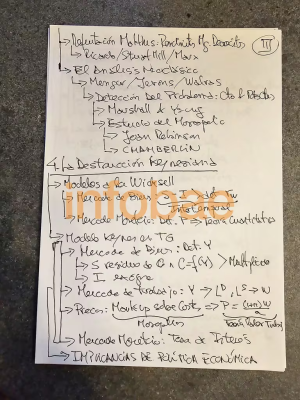 III
Malthus:
Ricardo/Stuart Mill/Marx
El Análisis Neoclásico
Menger/Jevons/Walras
Detección del Problema: Cto &
Marshall & Young
Estudio del Monopolio
Joan Robinson
CHAMBERLIN
4. Destrucción Keynesiana
Modelos a la Wicksell
Mercado de Bienes:
Intertemporal
Mercado Monetario: Det. P Teoría Cuantitativa
infobae
Modelo Keynes en TG
Mercado de Bienes: Det. Y
S residuo de C=f(Y) Multiplicador
I exóg.
Mercado de Trabajo: Y → L^D, L^S → W
Precios: Mark up sobre Costos → P = (1+m)W/a
Monopolios
Teoría Valor Trabajo
Mercado Monetario: Tasa de Interés
IMPLICANCIAS DE POLÍTICA ECONÓMICA